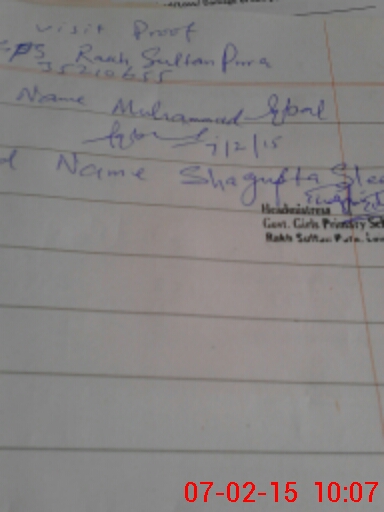 Visit Proof
GPS Raakh Sultan Pura
35210655
Name Muhammad Iqbal
Iqbal 7/2/15
d Name Shagufta
Headmistress
Govt. Girls Primary Sch
Rakh Sultan Pura,
07-02-15 10:07